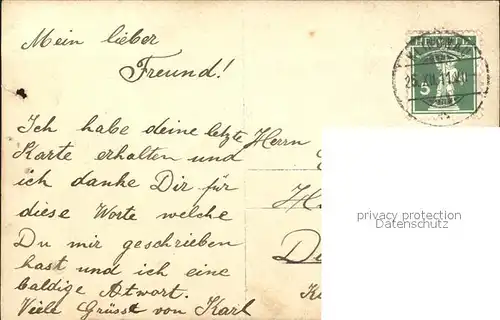 Mein lieber
Freund!
Ich habe deine letzte
Karte erhalten und
ich danke Dir für
diese Worte welche
Du mir geschrieben
hast und ich eine
baldige Atwort.
Viele Grüsst von Karl
Herrn
HELVETIA
5
privacy protection
Datenschutz